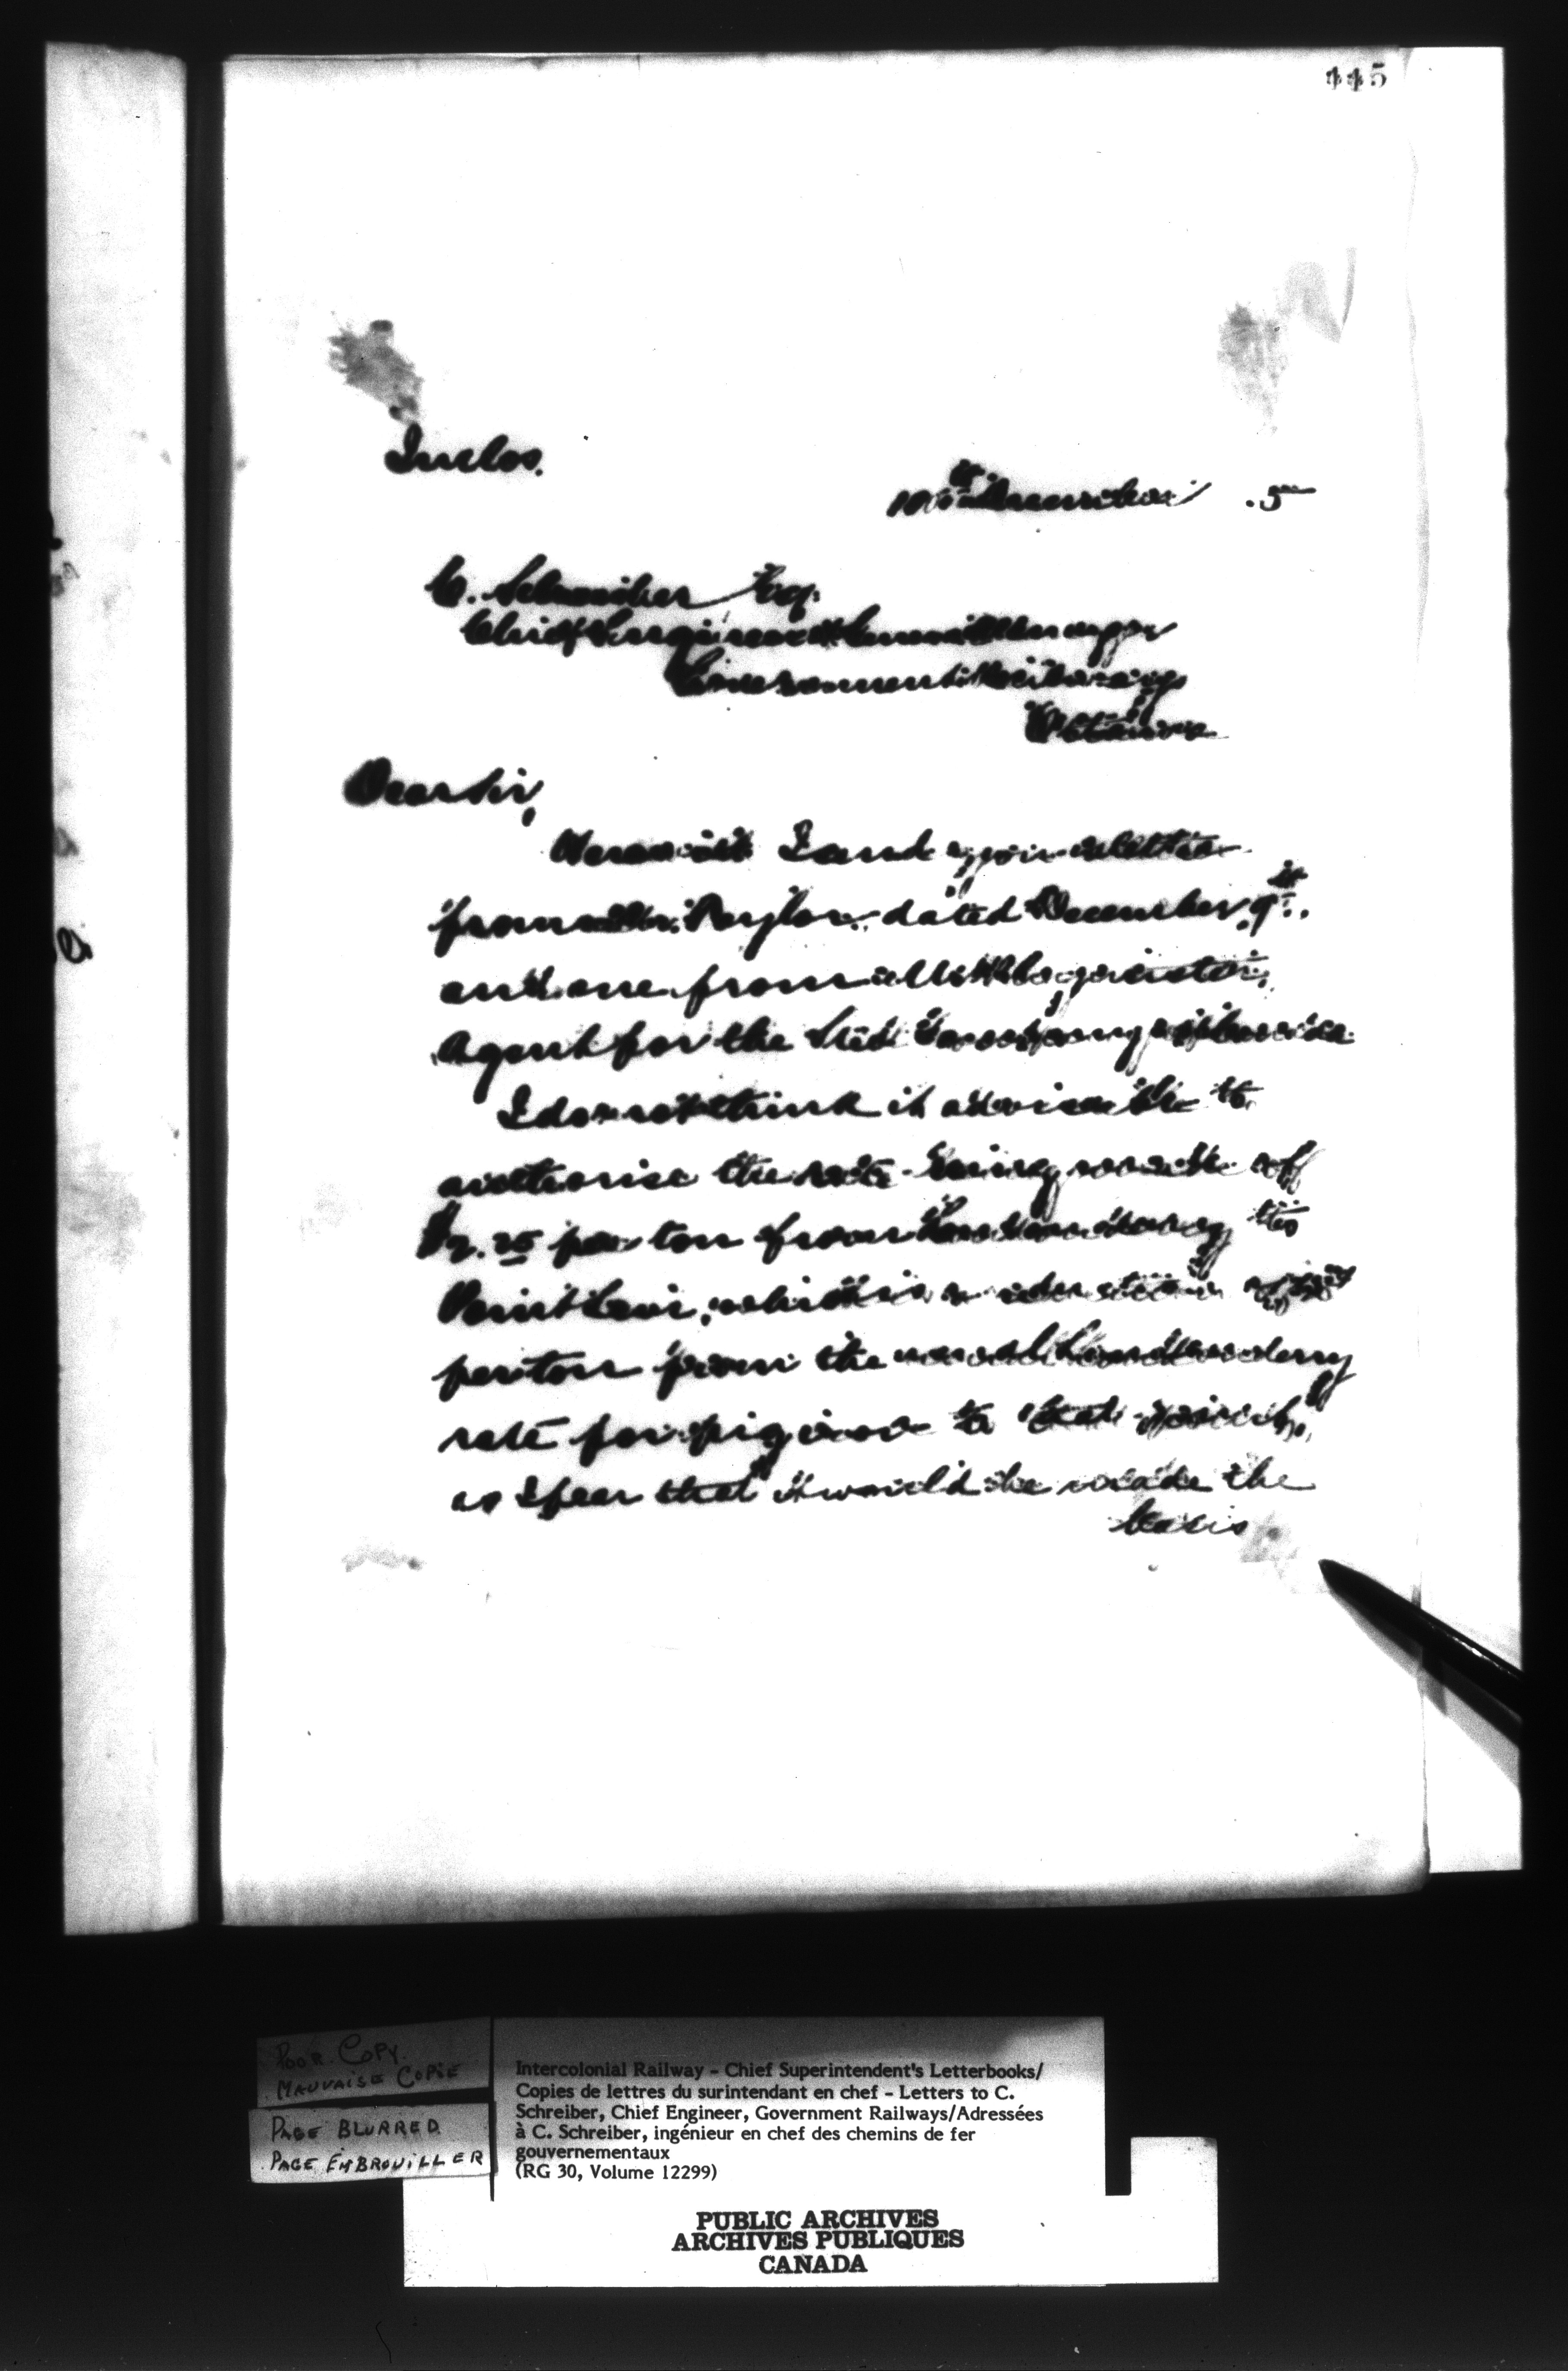 445
Inclos.
10th December .5
C. Schreiber Esq.
Chief Engineer & General Manager
Government Railways
Ottawa
Dear Sir,
Herewith I and your letter
from Mr. Taylor dated December 9th.
and one from
Agent for the Steel Company
I do not think it advisable to
authorise the rate being made of
$2.25 per ton from Londonderry to
Point Levi, which is a reduction of
per ton from the usual Londonderry
rate for pig iron to that point,
as I fear that it would be made the
basis
POOR COPY.
MAUVAISE COPIE
PAGE BLURRED
PAGE EMBROUILLER
Intercolonial Railway - Chief Superintendent's Letterbooks/
Copies de lettres du surintendant en chef - Letters to C.
Schreiber, Chief Engineer, Government Railways/Adressées
à C. Schreiber, ingénieur en chef des chemins de fer
gouvernementaux
(RG 30, Volume 12299)
PUBLIC ARCHIVES
ARCHIVES PUBLIQUES
CANADA